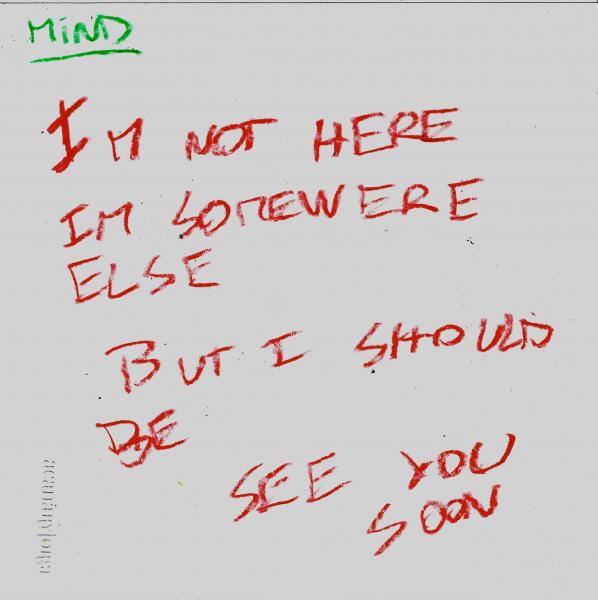 MIND
I'M NOT HERE
IM SOMEWERE
ELSE
BUT I SHOULD
BE
SEE YOU
SOON